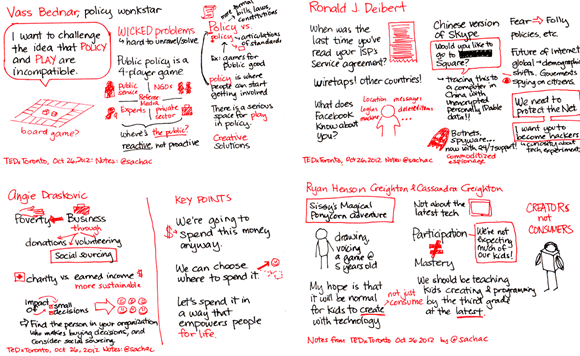 Vass Bednar, policy wonkstar
I want to challenge
the idea that POLICY
and PLAY are
incompatible.
board game?
WICKED problems
hard to unravel/solve
Public policy is a
4-player game
Public service
NGOs
Bednar
Media
Experts
private sector
where's the public?
reactive, not proactive
not formal
bills, laws,
constitutions
Policy
vs.
policy
articulations
of standards
Ex: games for
Public good
policy is where
people can start
getting involved
There is a serious
space for play
in policy.
Creative
Solutions
TEDxToronto, Oct 26, 2012. Notes: @sachac
Ronald J. Deibert
When was the
last time you've
read your ISP's
Service agreement?
Wiretaps! other countries!
What does
Facebook
Know about
you?
Location messages
Logins
identities
Chinese version
of Skype
Would you like to
go to
Square?
tracing this to
a computer in
China with
unencrypted
personally ID'able
data!!
Botnets,
Spyware...
now with 24/7 support!
commoditized
espionage
Fear → Folly
policies, etc.
Future of Internet
global → demographic
shifts. Governments
spying on citizens.
We need to
protect the Net
I want you to
become hackers
curiosity about
tech experiment
TEDxToronto, Oct 26, 2012 Notes: @sachac
Angie Draskovic
Poverty
Business
through
donations
volunteering
Social sourcing
charity vs earned income $
more sustainable
Impact
of small
decisions
Find the person in your organization
who makes buying decisions, and
consider social sourcing.
TEDxToronto, Oct 26, 2012 Notes: @sachac
KEY POINTS
We're going to
spend this money
anyway.
We can choose
where to spend it.
Let's spend it in
a way that
empowers people
for life.
Ryan Henson Creighton & Cassandra Creighton
Sissy's Magical
Ponycorn adventure
drawing,
voicing
a game @
5 years old
My hope is that
it will be normal
for kids to create
with technology
not just
consume
Not about the
latest tech
Participation
≠
Mastery
We're not
expecting
much of
our kids!
We should be teaching
kids creating & programming
by the third grade
at the latest.
CREATORS
not
CONSUMERS
Notes from TEDxToronto Oct 26 2012 by @sachac